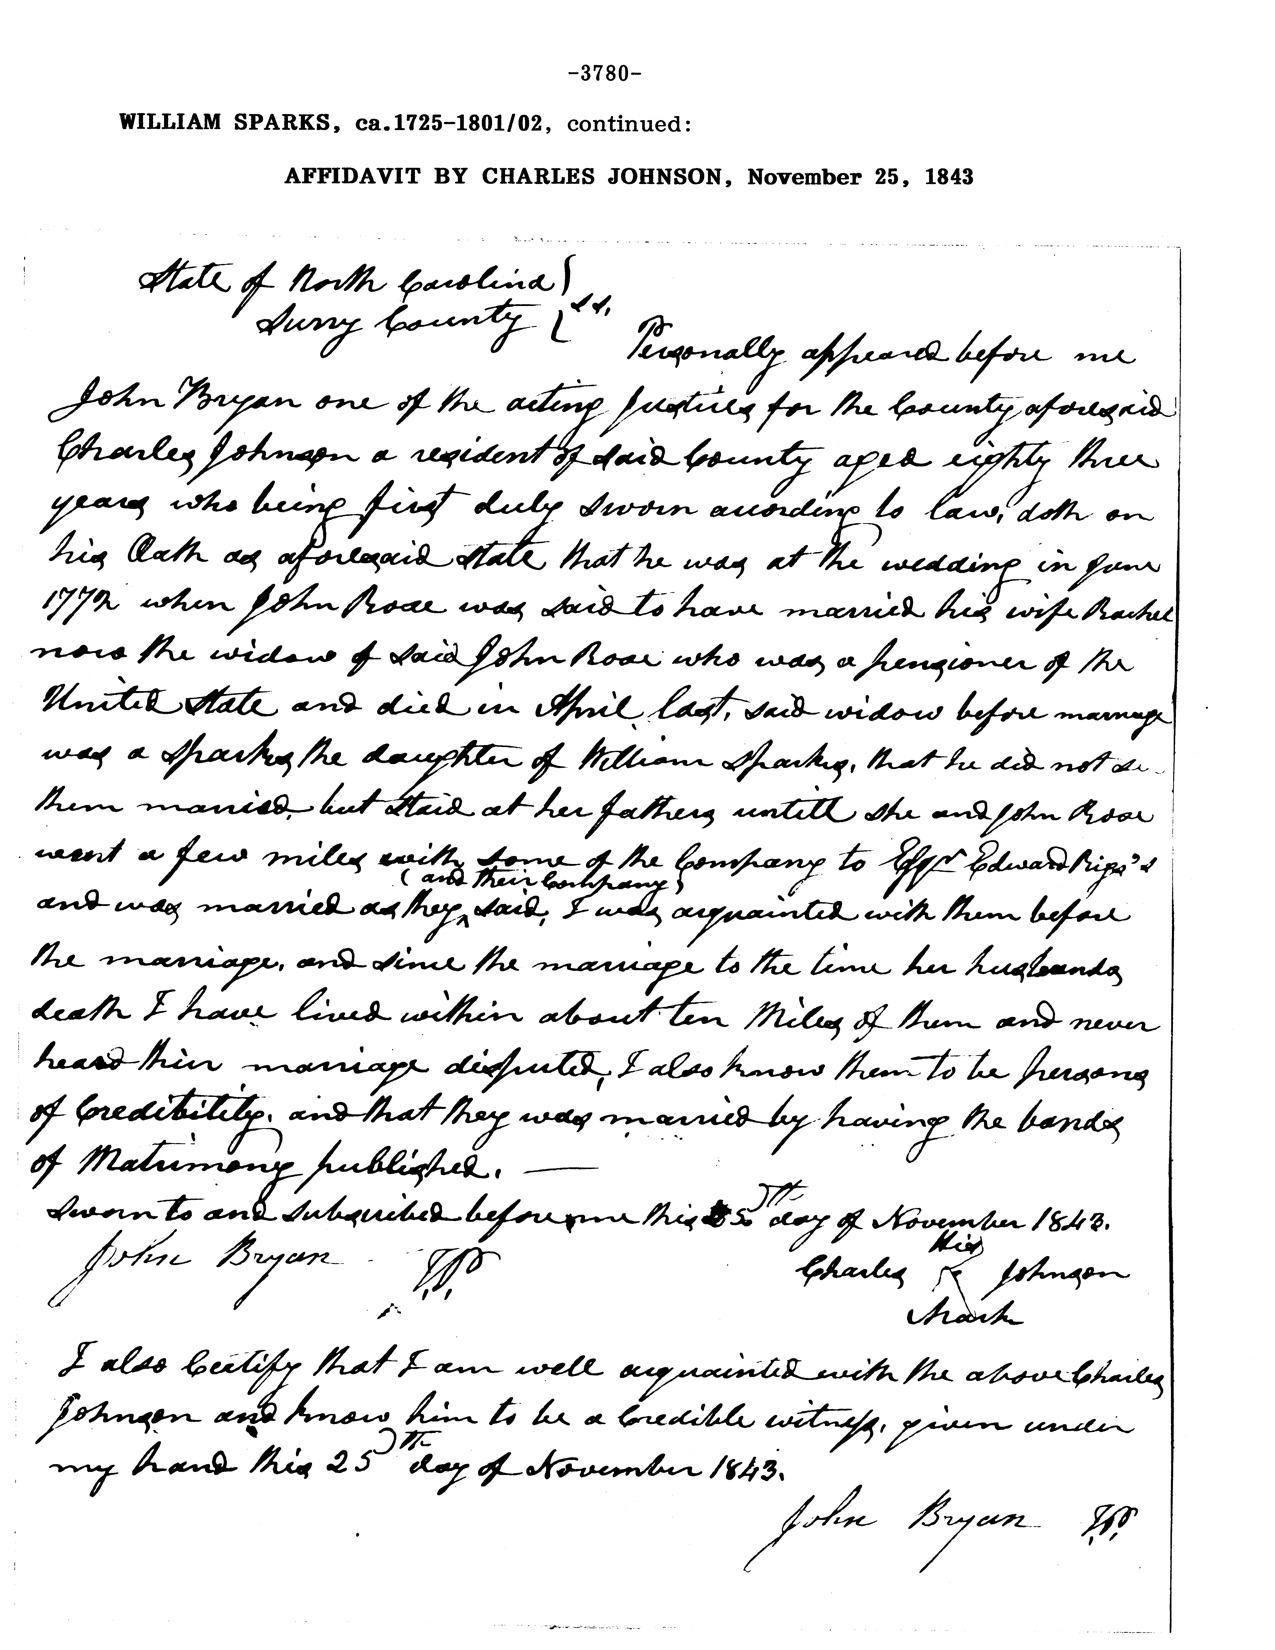 -3780-
WILLIAM SPARKS, ca.1725-1801/02, continued:
AFFIDAVIT BY CHARLES JOHNSON, November 25, 1843
State of North Carolina }
Surry County } ss.
Personally appeared before me
John Bryan one of the acting Justices for the County aforesaid
Charles Johnson a resident of said County aged eighty three
years who being first duly sworn acording to law, doth on
his Oath as aforesaid state that he was at the wedding in June
1772 when John Rose was said to have married his wife Rachel
now the widow of said John Rose who was a pensioner of the
United State and died in April last, said widow before marriage
was a Sparks, the daughter of William Sparks, that he did not se
them married, but staid at her fathers untill she and John Rose
went a few miles with some of the Company to Esqr Edward Rigs's
(and their Company)
and was married as they ^ said, I was acquainted with them before
the marriage, and since the marriage to the time her husbands
death I have lived within about ten Miles of them and never
heard their marriage disputed, I also know them to be persons
of Credibility. and that they was married by having the bands
of Matrimony published. —
Sworn to and subscribed before me this 25th day of November 1843.
John Bryan J.P.
His
Charles X Johnson
Mark
I also Certify that I am well acquainted with the above Charles
Johnson and know him to be a Credible witness, given under
my hand this 25th day of November 1843.
John Bryan J.P.